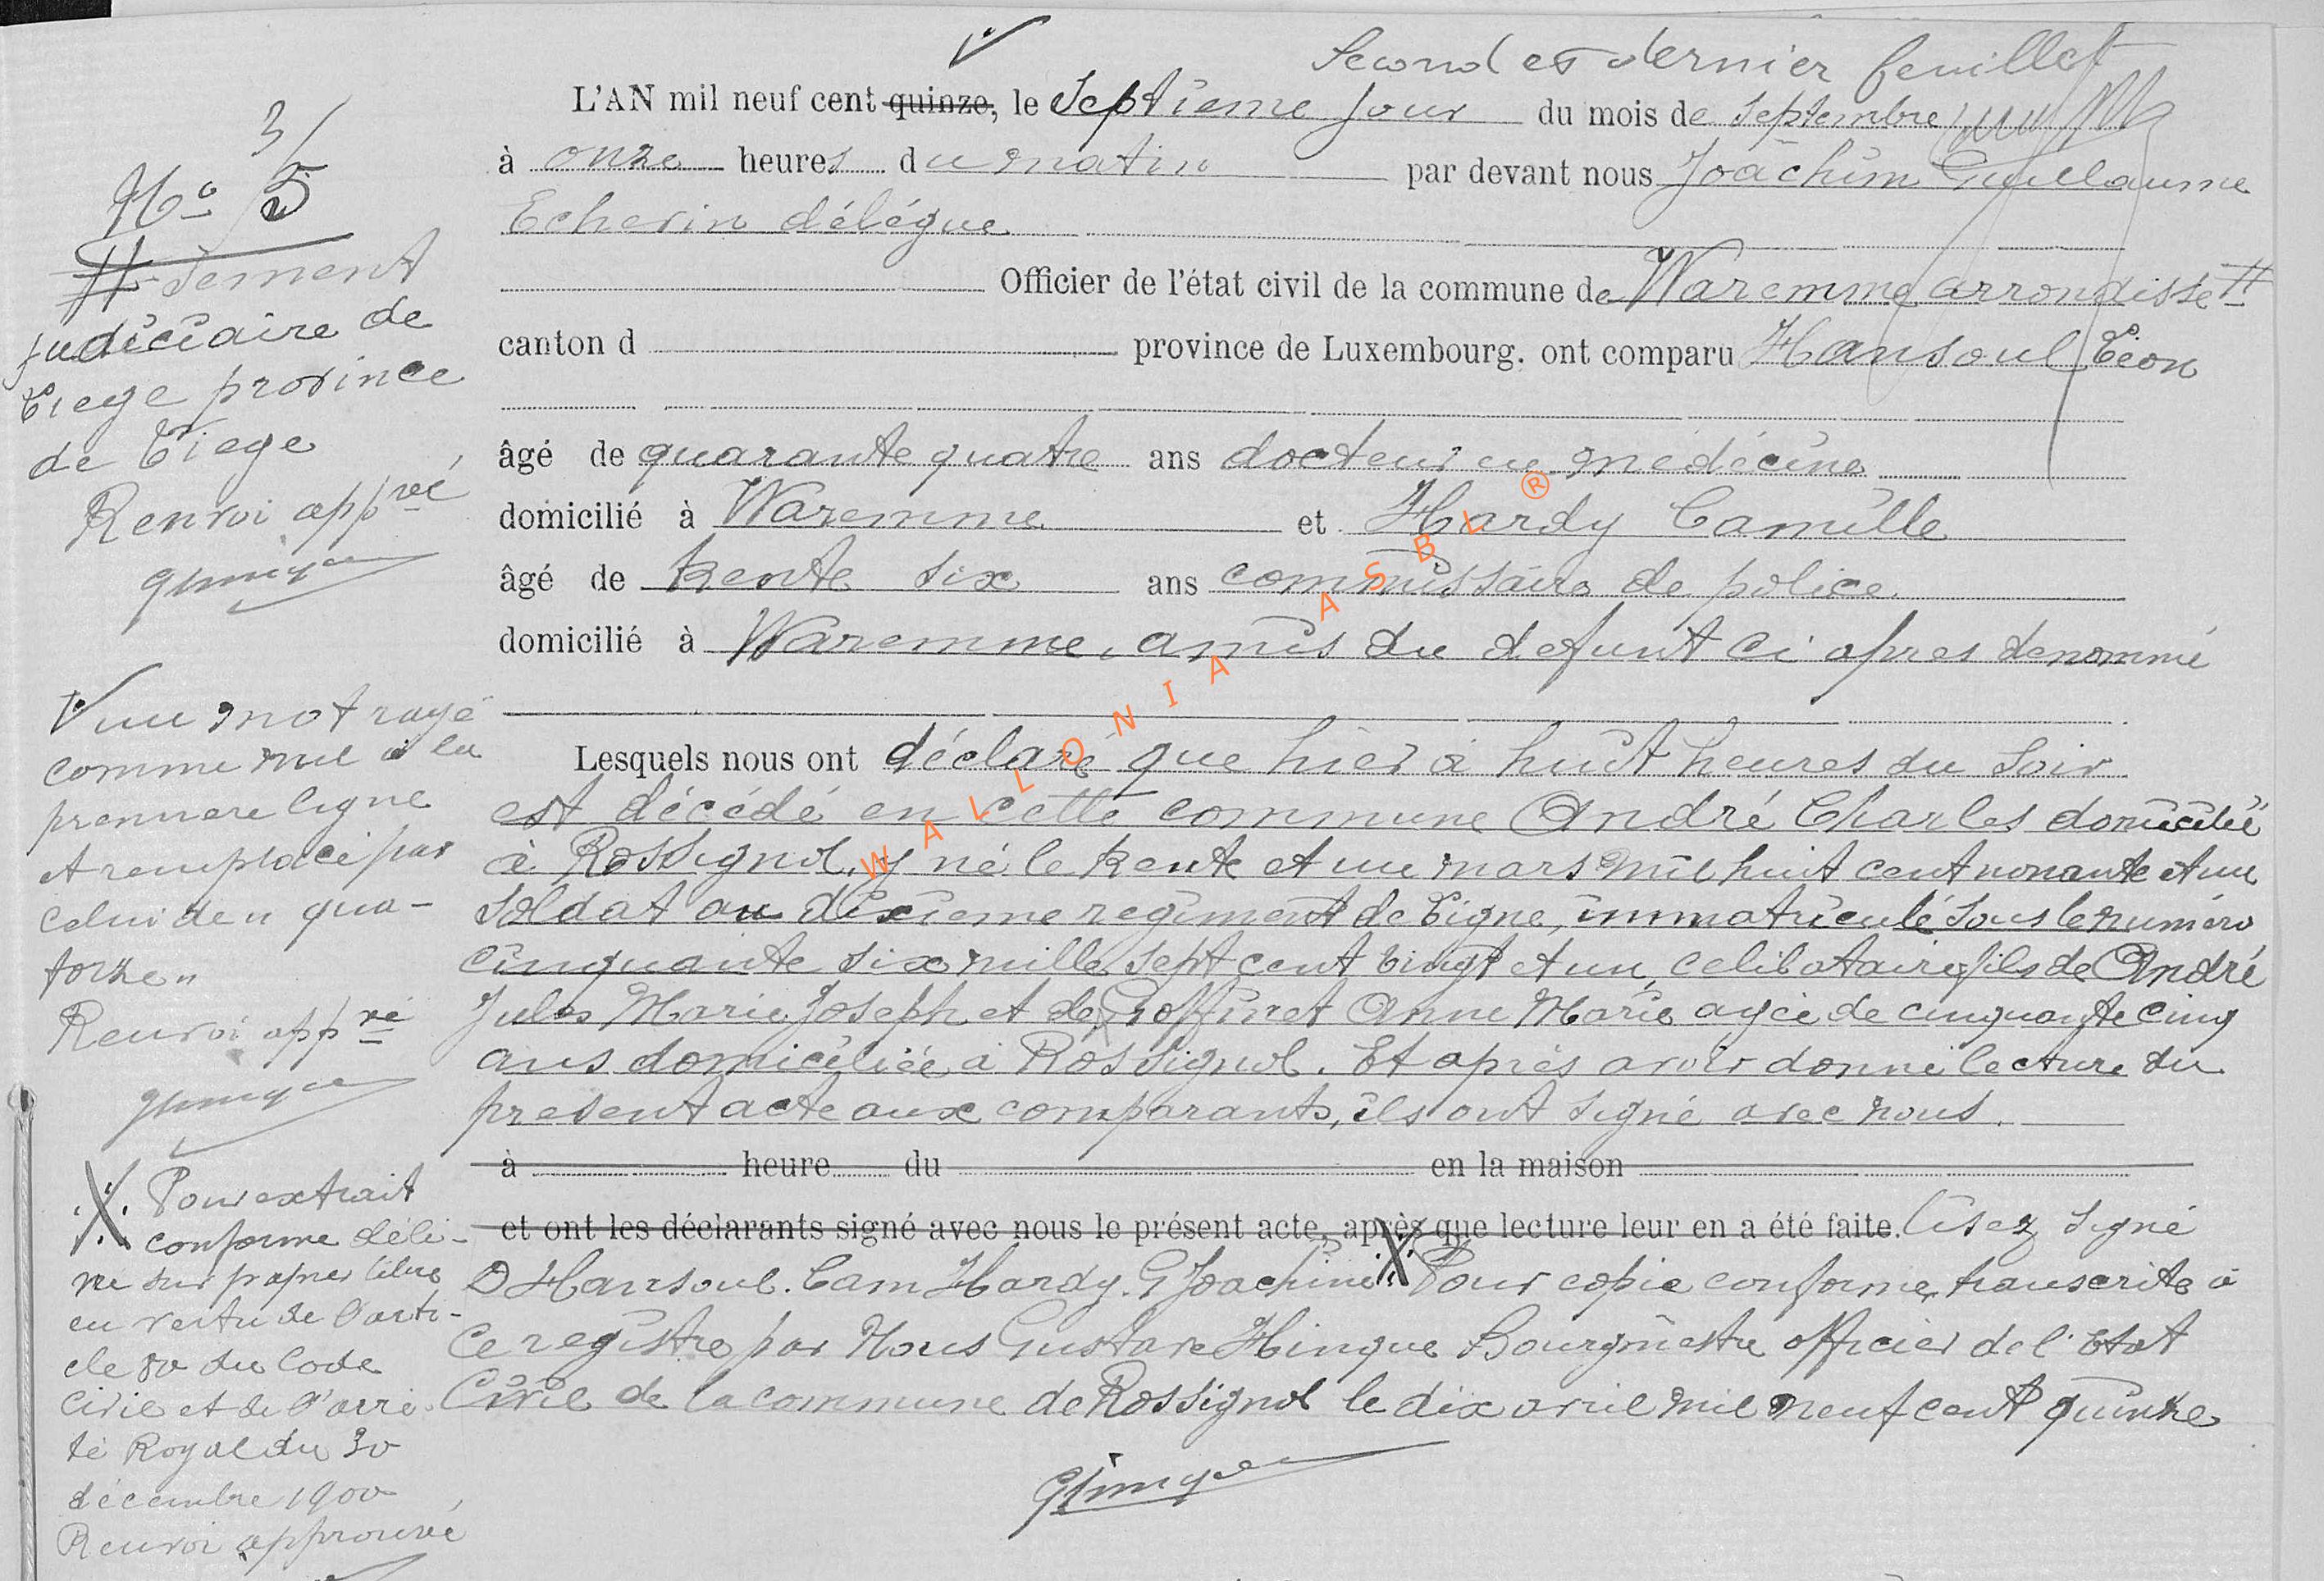 Second et dernier feuillet
L'AN mil neuf cent quinze, le Septième jour du mois de Septembre
à onze heures du matin par devant nous Joachim Guillaume
Echevin délégué
Officier de l'état civil de la commune de Waremme arrondisse
canton d province de Luxembourg. ont comparu Hansoul Léon
âgé de quarante quatre ans docteur en médécine
domicilié à Waremme et Hardy Camille
âgé de trente six ans commissaire de police
domicilié à Waremme, amis du defunt ci apres denommé
Lesquels nous ont déclaré que hier à huit heures du Soir
est décédé en cette commune André Charles domicilié
à Rossignol, y né le trente et un mars mil huit cent nonante et un
Soldat au dixieme regiment de Ligne, immatriculé sous le numéro
cinquante six mille sept cent vingt et un, celibataire, fils de André
Jules Marie Joseph et de Goffinet Anne Marie agée de cinquante cinq
ans domiciliée à Rossignol. Et après avoir donné lecture du
present acte aux comparants, ils ont signé avec nous.
à heure du en la maison
et ont les déclarants signé avec nous le présent acte, après que lecture leur en a été faite. Lisez signé
D Hansoul. Cam Hardy. G Joachim X Pour copie conforme, transcrite à
ce registre par Nous Gustave Hinque Bourgmestre officier de l'Etat
Civil de la commune de Rossignol le dix avril mil neuf cent quinze
3/
No 5
# sement
judiciaire de
Liege province
de Liege
Renvoi appvé
V un mot rayé
comme nul à la
premiere ligne
et remplacé par
celui de " qua-
torze "
Renvoi appvé
X Pour extrait
conforme déli-
vré sur papier libre
en vertu de l'arti-
cle 80 du Code
Civil et de l'arrê-
té Royal du 30
décembre 1900
Renvoi approuvé
WALLONIA ASBL ®